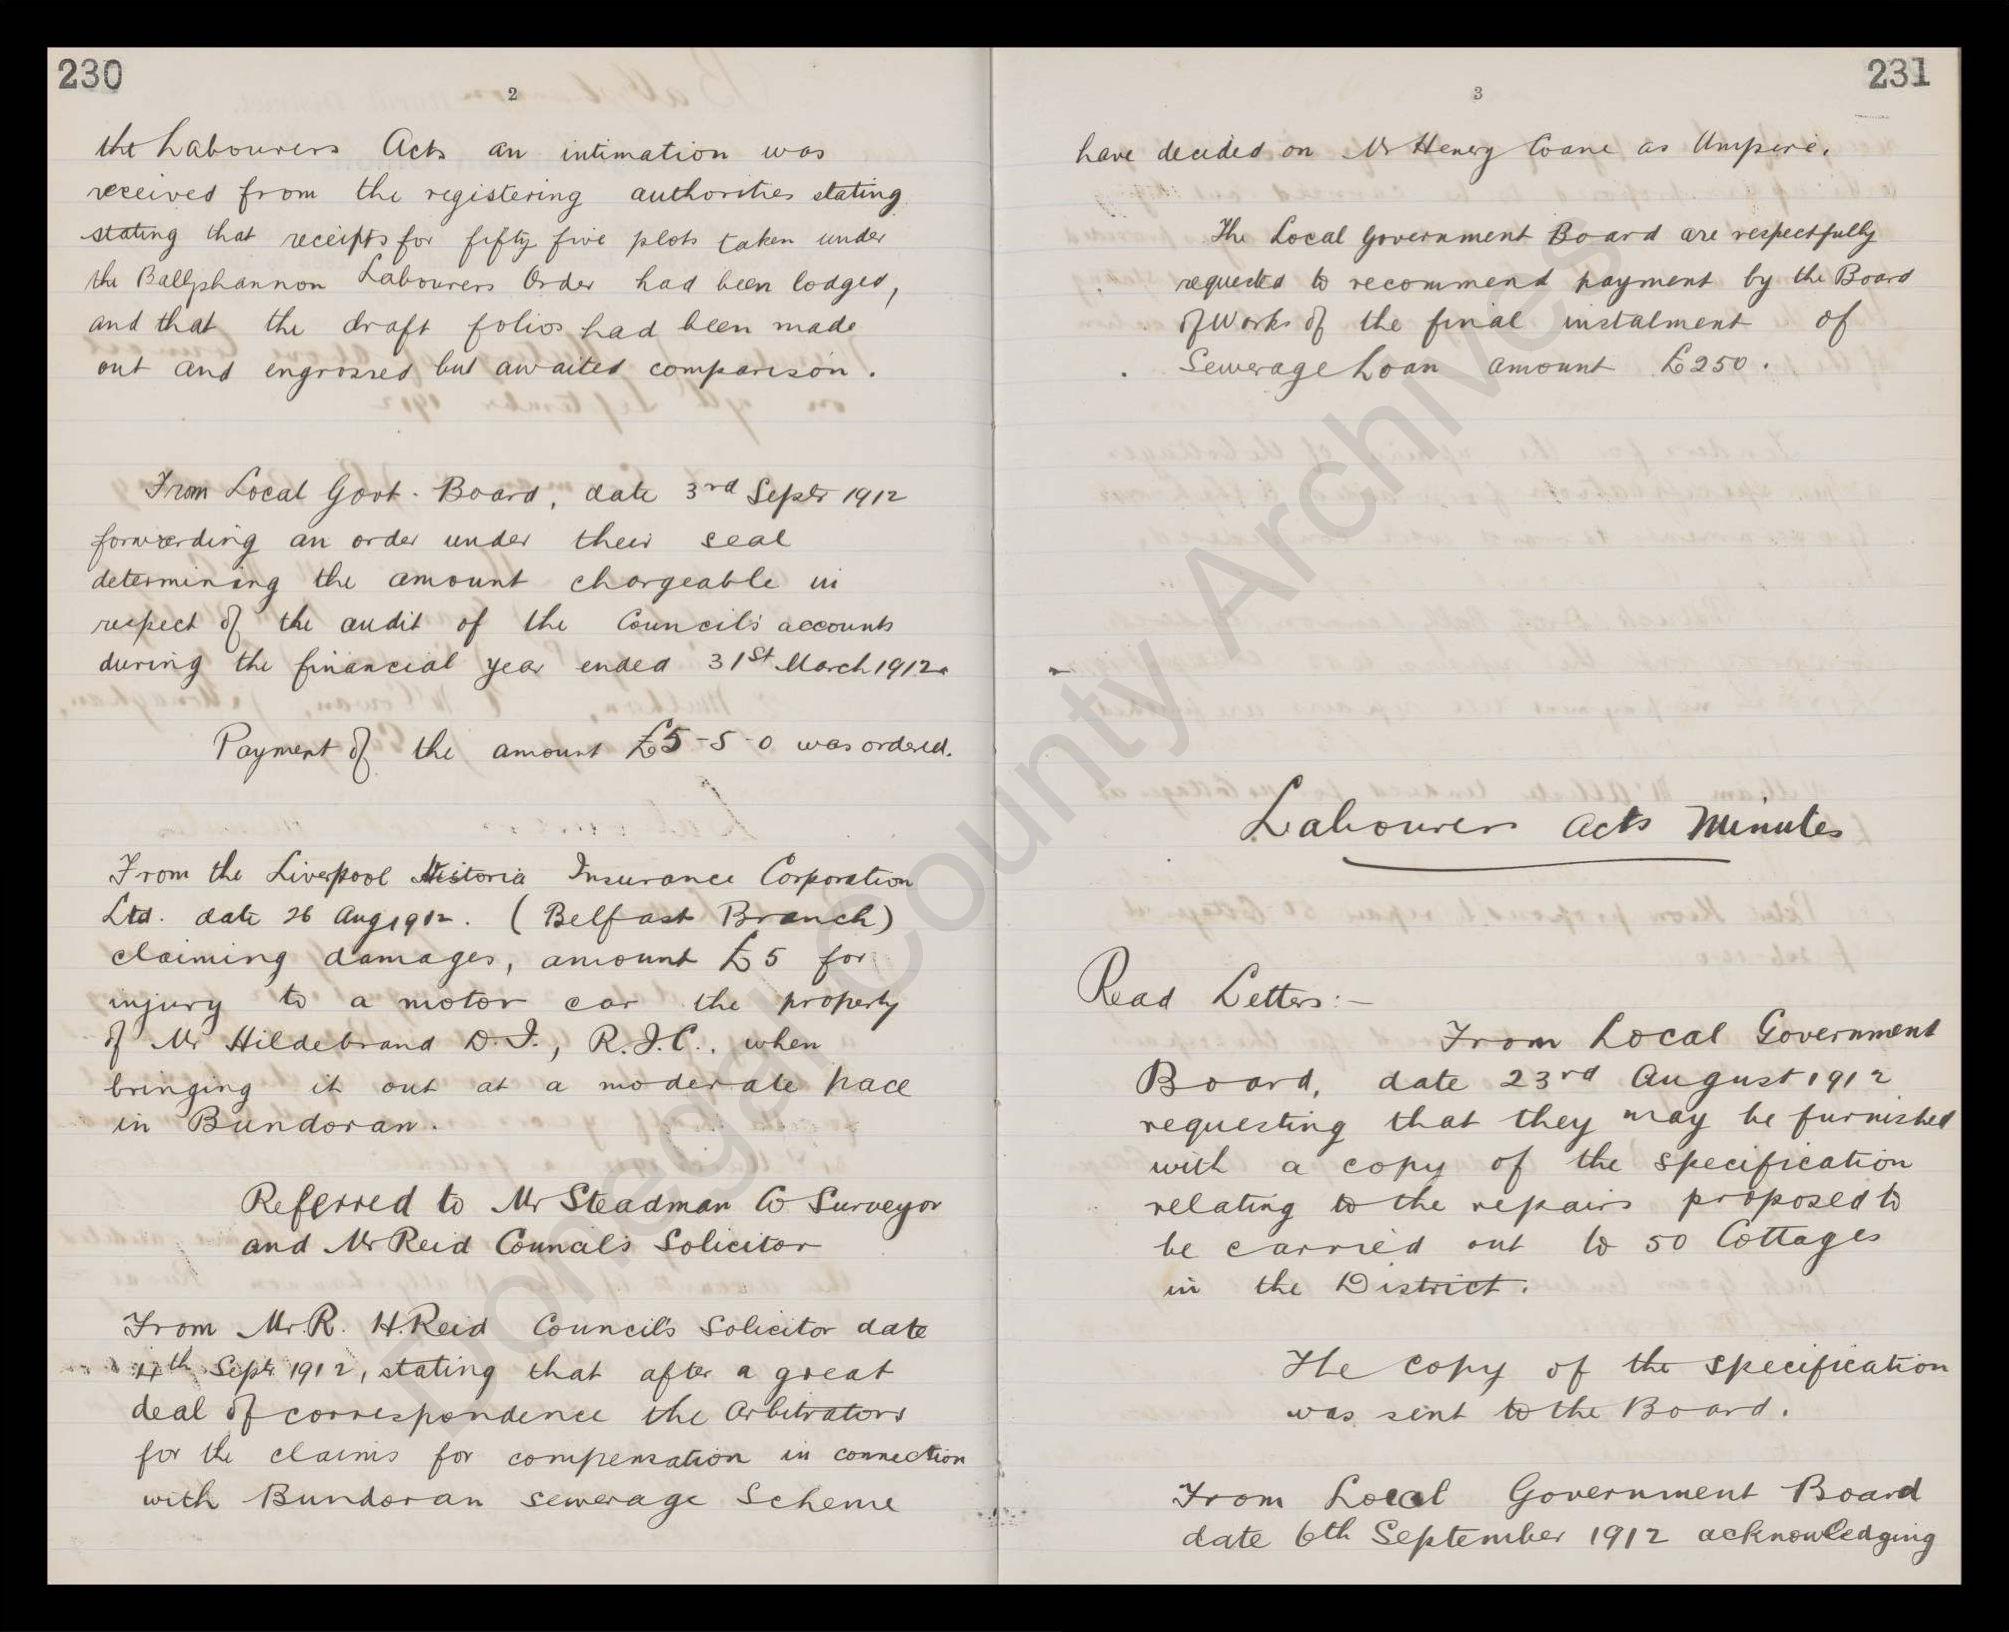 230
2
the Labourers Acts an intimation was
received from the registering authorities stating
stating that receipts for fifty five plots taken under
the Ballyshannon Labourers Order had been lodged,
and that the draft folios had been made
out and engrossed but awaited comparison.
From Local Govt. Board, date 3rd Septr 1912
forwarding an order under their seal
determining the amount chargeable in
respect of the audit of the Council's accounts
during the financial year ended 31st March 1912.
Payment of the amount £5-5-0 was ordered.
From the Liverpool Victoria Insurance Corporation
Ltd. date 26 Aug 1912. (Belfast Branch)
claiming damages, amount £5 for
injury to a motor car the property
of Mr Hildebrand D.I., R.I.C., when
bringing it out at a moderate pace
in Bundoran.
Referred to Mr Steadman Co Surveyor
and Mr Reid Council's Solicitor
From Mr. R. H. Reid Council's Solicitor date
14th Septr 1912, stating that after a great
deal of correspondence the Arbitrators
for the claims for compensation in connection
with Bundoran Sewerage Scheme
231
3
have decided on Mr Henry Coane as Umpire.
The Local Government Board are respectfully
requested to recommend payment by the Board
of Works of the final instalment of
Sewerage Loan amount £250.
Labourers Acts Minutes
Read Letters:-
From Local Government
Board, date 23rd August 1912
requesting that they may be furnished
with a copy of the specification
relating to the repairs proposed to
be carried out to 50 Cottages
in the District.
The copy of the specification
was sent to the Board.
From Local Government Board
date 6th September 1912 acknowledging
Donegal County Archives